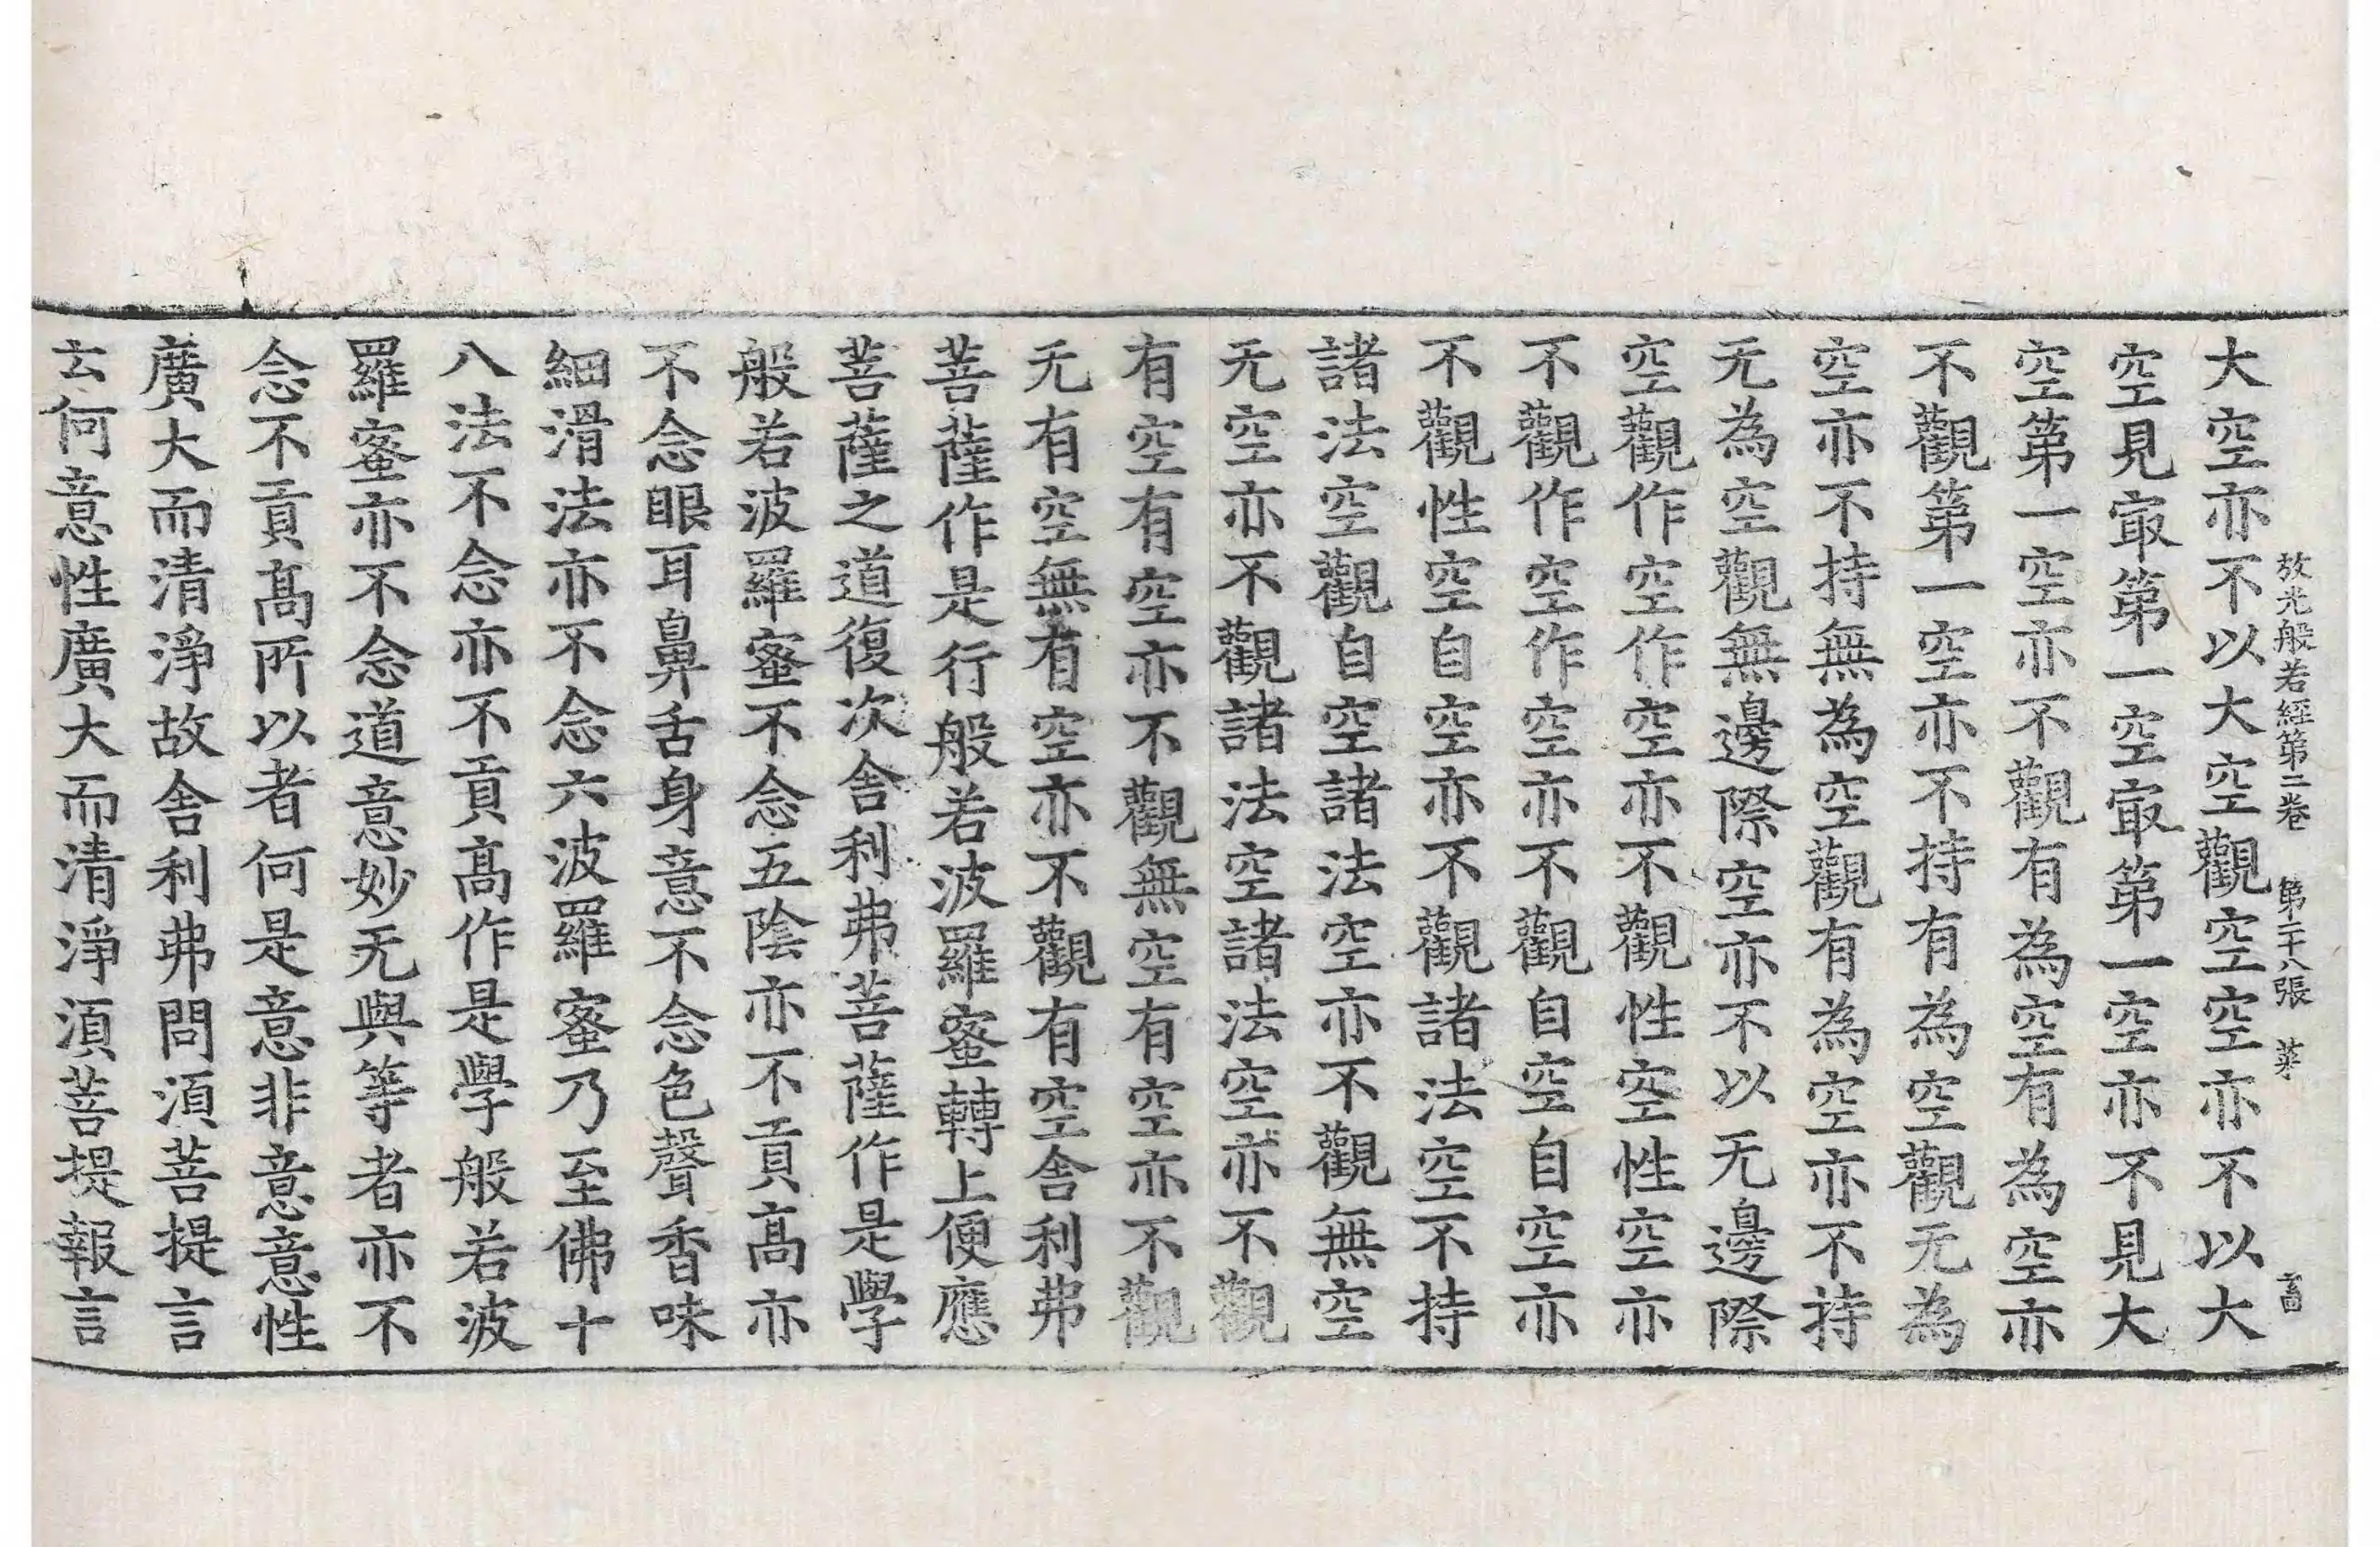 放光般若經第二卷　第二十八張　菜
大空亦不以大空觀空空亦不以大
空見㝡第一空㝡第一空亦不見大
空第一空亦不觀有為空有為空亦
不觀第一空亦不持有為空觀无為
空亦不持無為空觀有為空亦不持
无為空觀無邊際空亦不以无邊際
空觀作空作空亦不觀性空性空亦
不觀作空作空亦不觀自空自空亦
不觀性空自空亦不觀諸法空不持
諸法空觀自空諸法空亦不觀無空
无空亦不觀諸法空諸法空亦不觀
有空有空亦不觀無空有空亦不觀
无有空無有空亦不觀有空舍利弗
菩薩作是行般若波羅蜜轉上便應
菩薩之道復次舍利弗菩薩作是學
般若波羅蜜不念五陰亦不貢高亦
不念眼耳鼻舌身意不念色聲香味
細滑法亦不念六波羅蜜乃至佛十
八法不念亦不貢高作是學般若波
羅蜜亦不念道意妙无與等者亦不
念不貢高所以者何是意非意意性
廣大而清淨故舍利弗問須菩提言
云何意性廣大而清淨須菩提報言